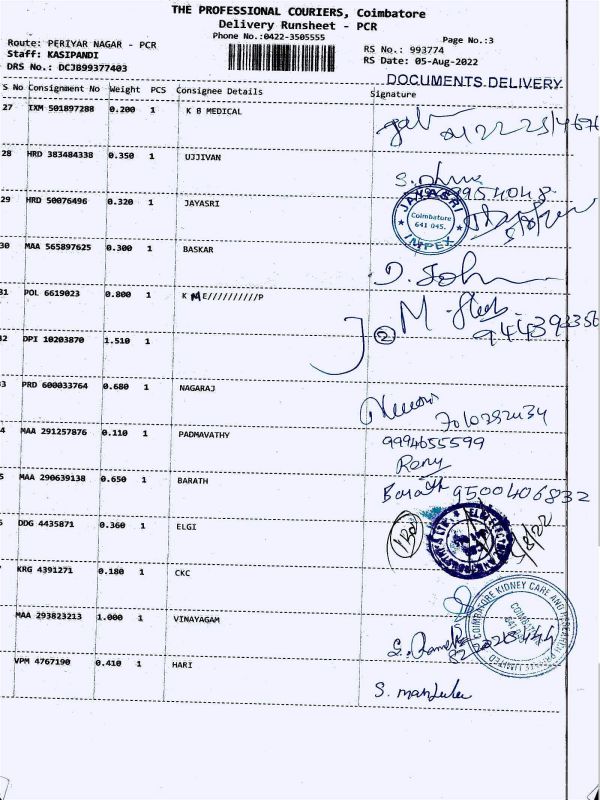 THE PROFESSIONAL COURIERS, Coimbatore
Delivery Runsheet - PCR
Phone No.:0422-3505555
Page No.:3
Route: PERIYAR NAGAR - PCR
RS No.: 993774
Staff: KASIPANDI
RS Date: 05-Aug-2022
DRS No.: DCJB99377403
DOCUMENTS DELIVERY
S No Consignment No Weight PCS Consignee Details Signature
27 IXM 501897288 0.200 1 K B MEDICAL
28 HRD 383484338 0.350 1 UJJIVAN
29 HRD 50076496 0.320 1 JAYASRI
JAYASRI
Coimbatore
641 045.
IMPEX
30 MAA 565897625 0.300 1 BASKAR
D. John
31 POL 6619023 0.800 1 K M E//////////P
M
2
32 DPI 10203870 1.510 1
33 PRD 600033764 0.680 1 NAGARAJ
4 MAA 291257876 0.110 1 PADMAVATHY
9994655599
5 MAA 290639138 0.650 1 BARATH
Barath 9500406832
6 DDG 4435871 0.360 1 ELGI
KRG 4391271 0.180 1 CKC
COIMBATORE KIDNEY CARE AND RESEARCH PRIVATE LIMITED
MAA 293823213 1.000 1 VINAYAGAM
VPM 4767190 0.410 1 HARI